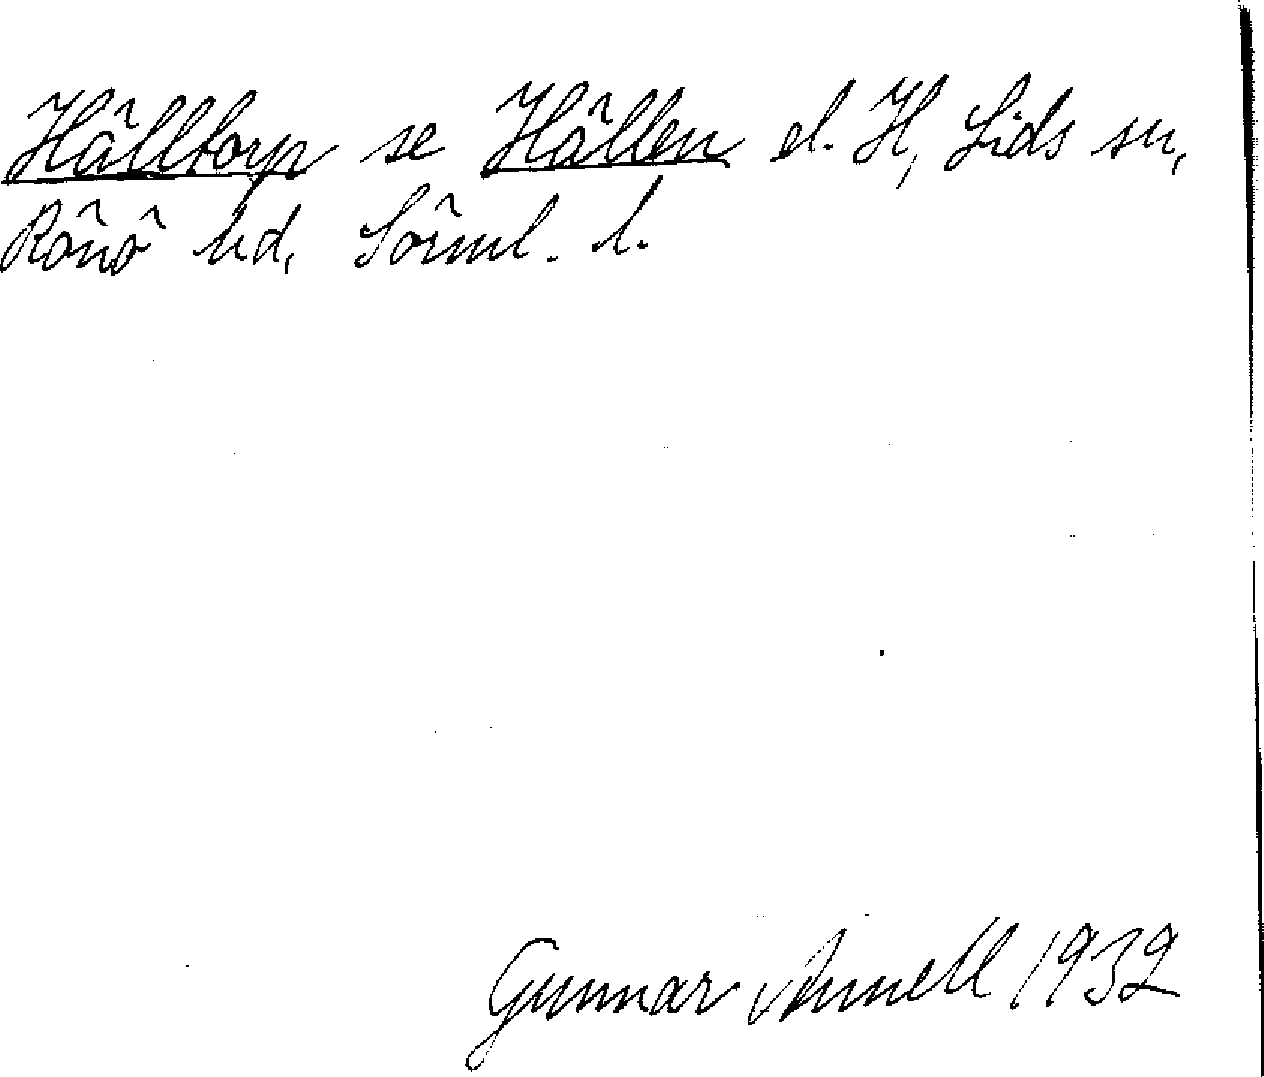 Hälltorp se Hällen el. H, Lids sn,
Rönö hd, Sörml. l.
Gunnar Annell 1932